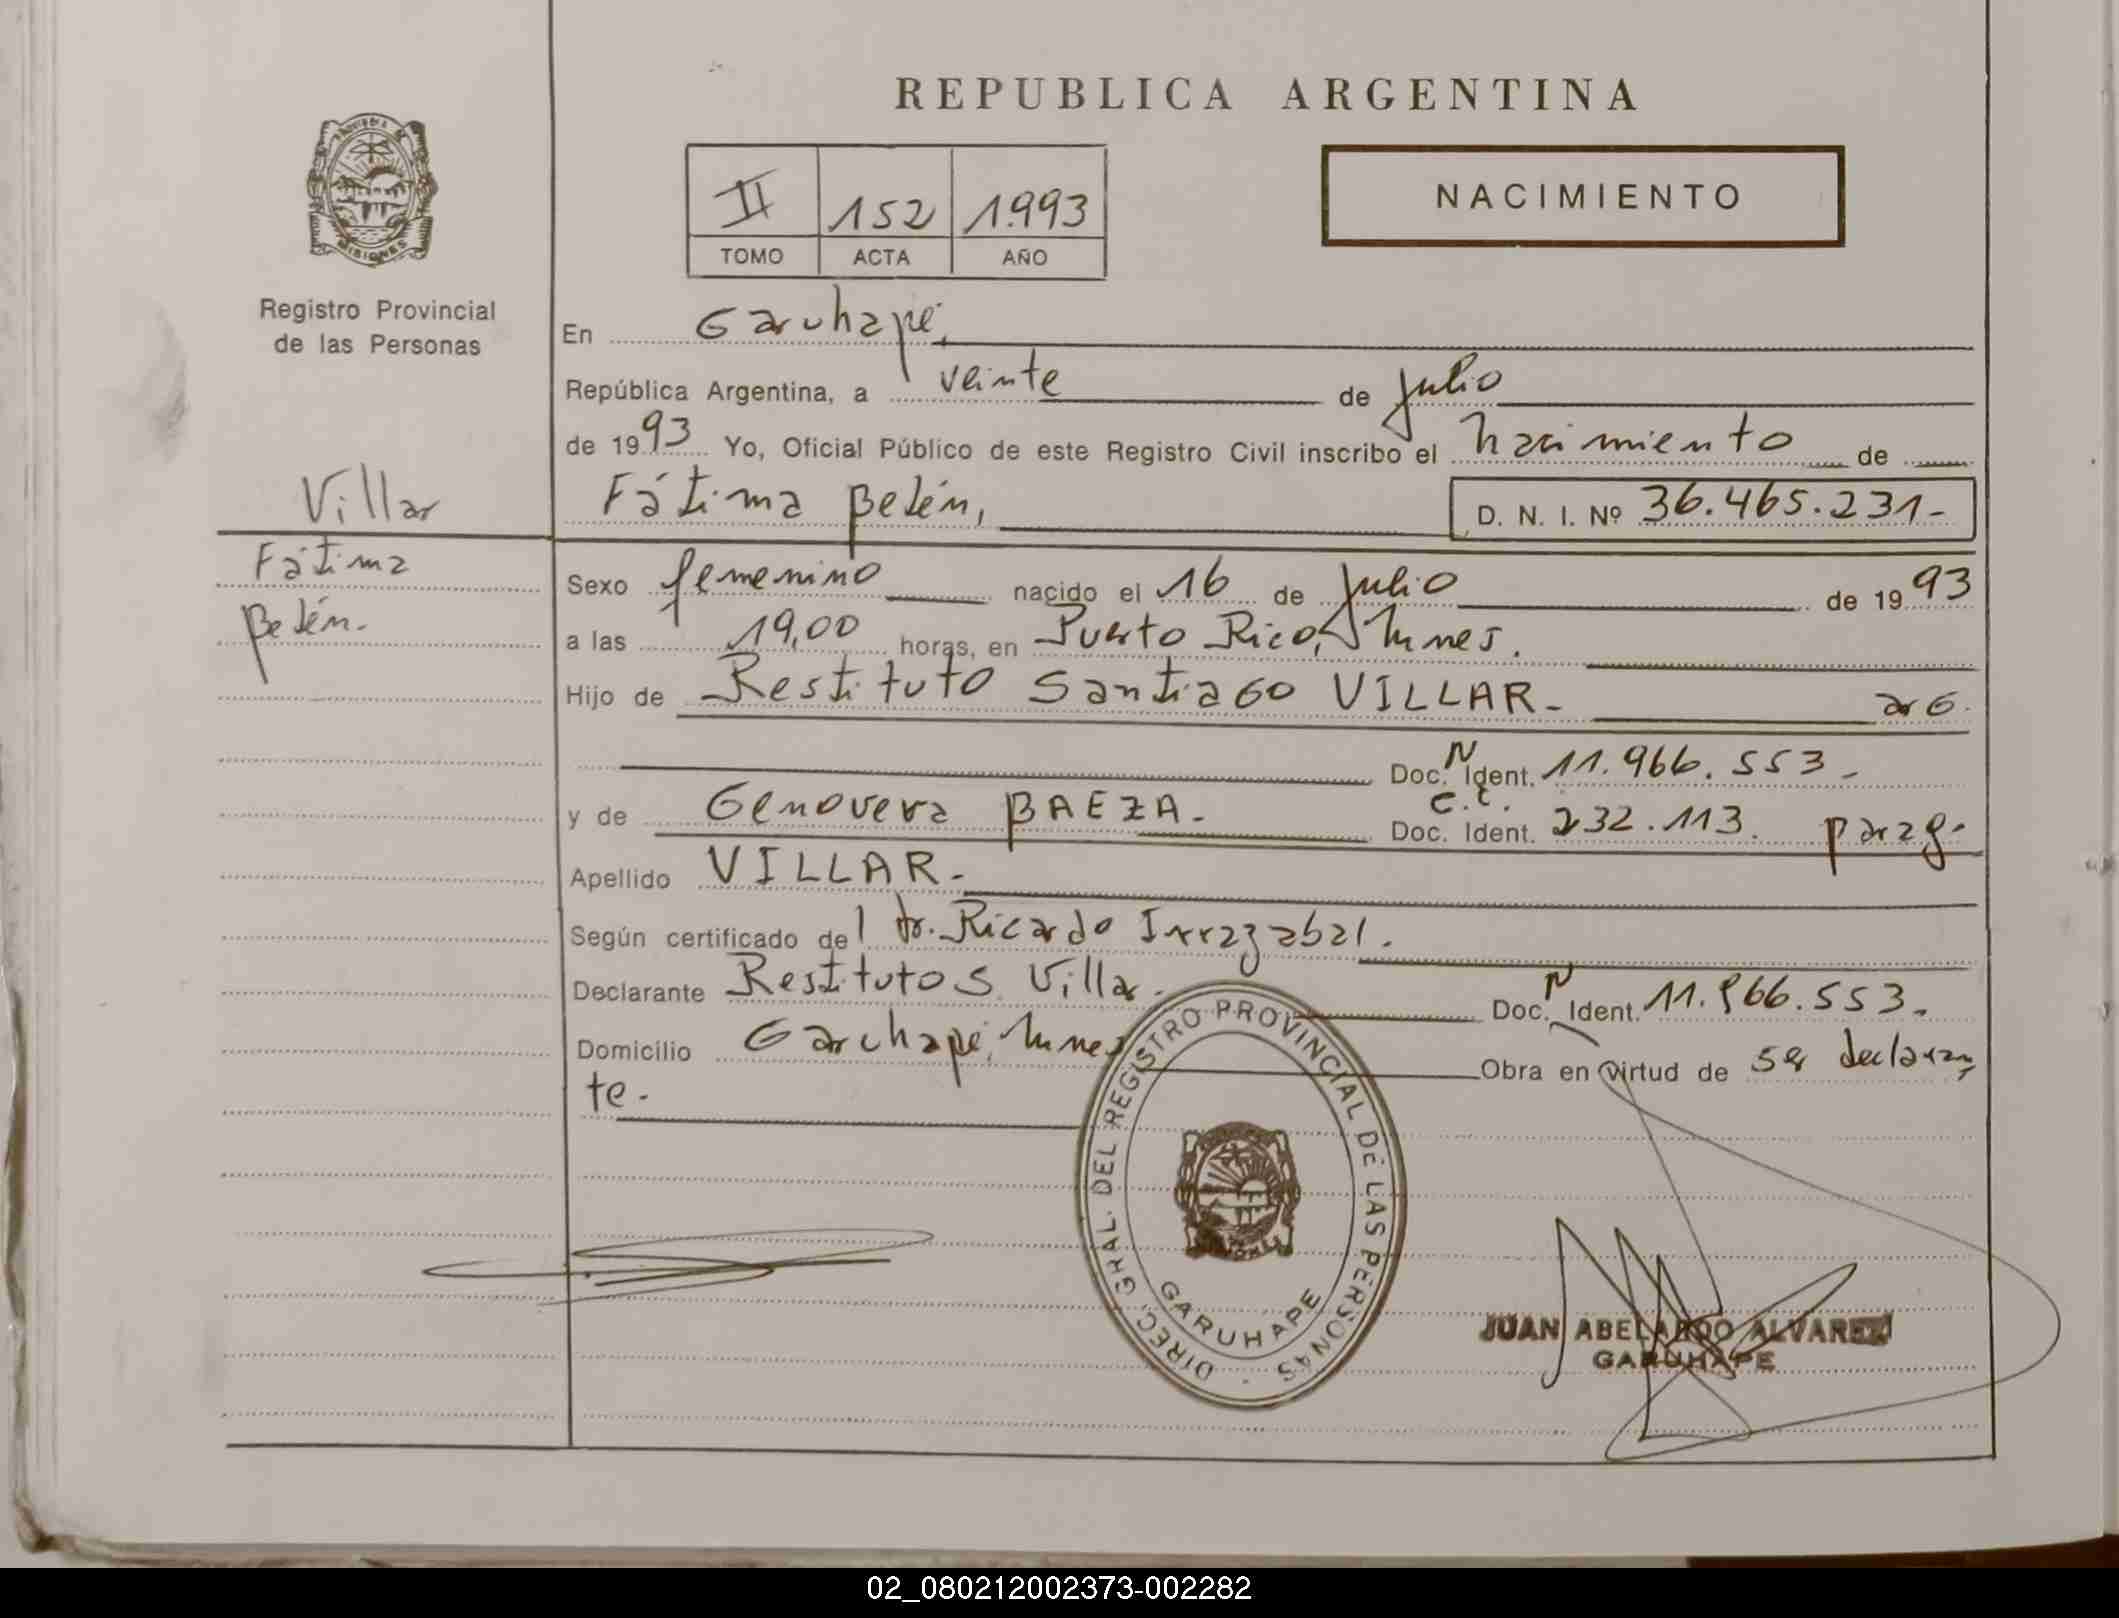 REPUBLICA ARGENTINA
PROVINCIA DE
MISIONES
Registro Provincial
de las Personas
II 152 1.993
TOMO ACTA AÑO
NACIMIENTO
En Garuhapé,
República Argentina, a veinte de julio
de 1993 Yo, Oficial Público de este Registro Civil inscribo el nacimiento de
Fátima Belén, D. N. I. Nº 36.465.231-
Villar
Fátima
Belén.
Sexo femenino nacido el 16 de julio de 1993
a las 19,00 horas, en Puerto Rico, Mnes.
Hijo de Restituto Santiago VILLAR- arg.
Doc. N Ident. 11.966.553-
y de Genoveva BAEZA- Doc. Ident. C.I. 232.113. parag-
Apellido VILLAR-
Según certificado del dr. Ricardo Irrazabal.
Declarante Restituto S. Villar. Doc. N Ident. 11.966.553-
Domicilio Garuhapé, Mnes Obra en virtud de ser declaran
te-
DIREC. GRAL. DEL REGISTRO PROVINCIAL DE LAS PERSONAS
GARUHAPE
JUAN ABELARDO ALVAREZ
GARUHAPE
02_080212002373-002282